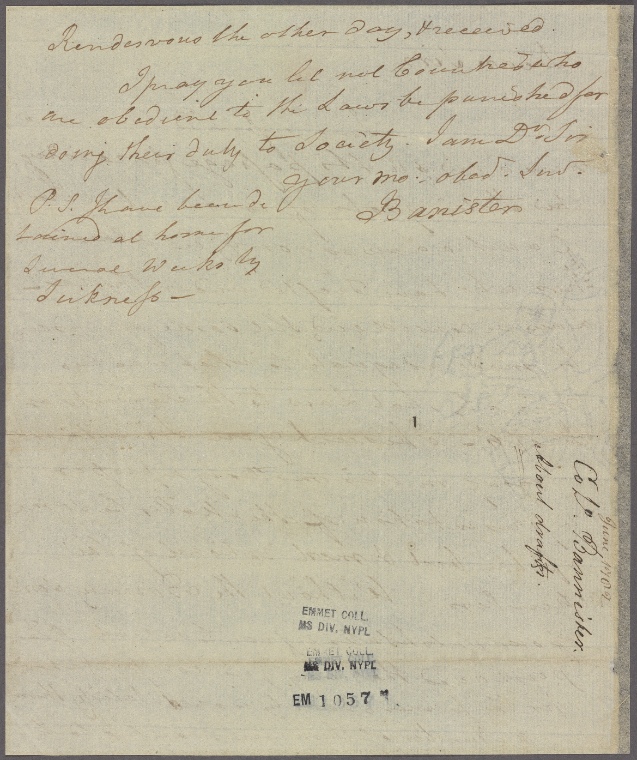 Rendesvous the other day, & received.
I pray you let not Counties who
are obedient to the Laws be punished for
doing their duty to Society. I am Dr. Sir
your mo. obed. Serv.
Banister
P. S. I have been de
tained at home for
several Weeks by
Sickness —
June 1782
Colo. Bannister.
About drafts.
EMMET COLL.
MS DIV. NYPL
EMMET COLL.
MS DIV. NYPL
EM 1057